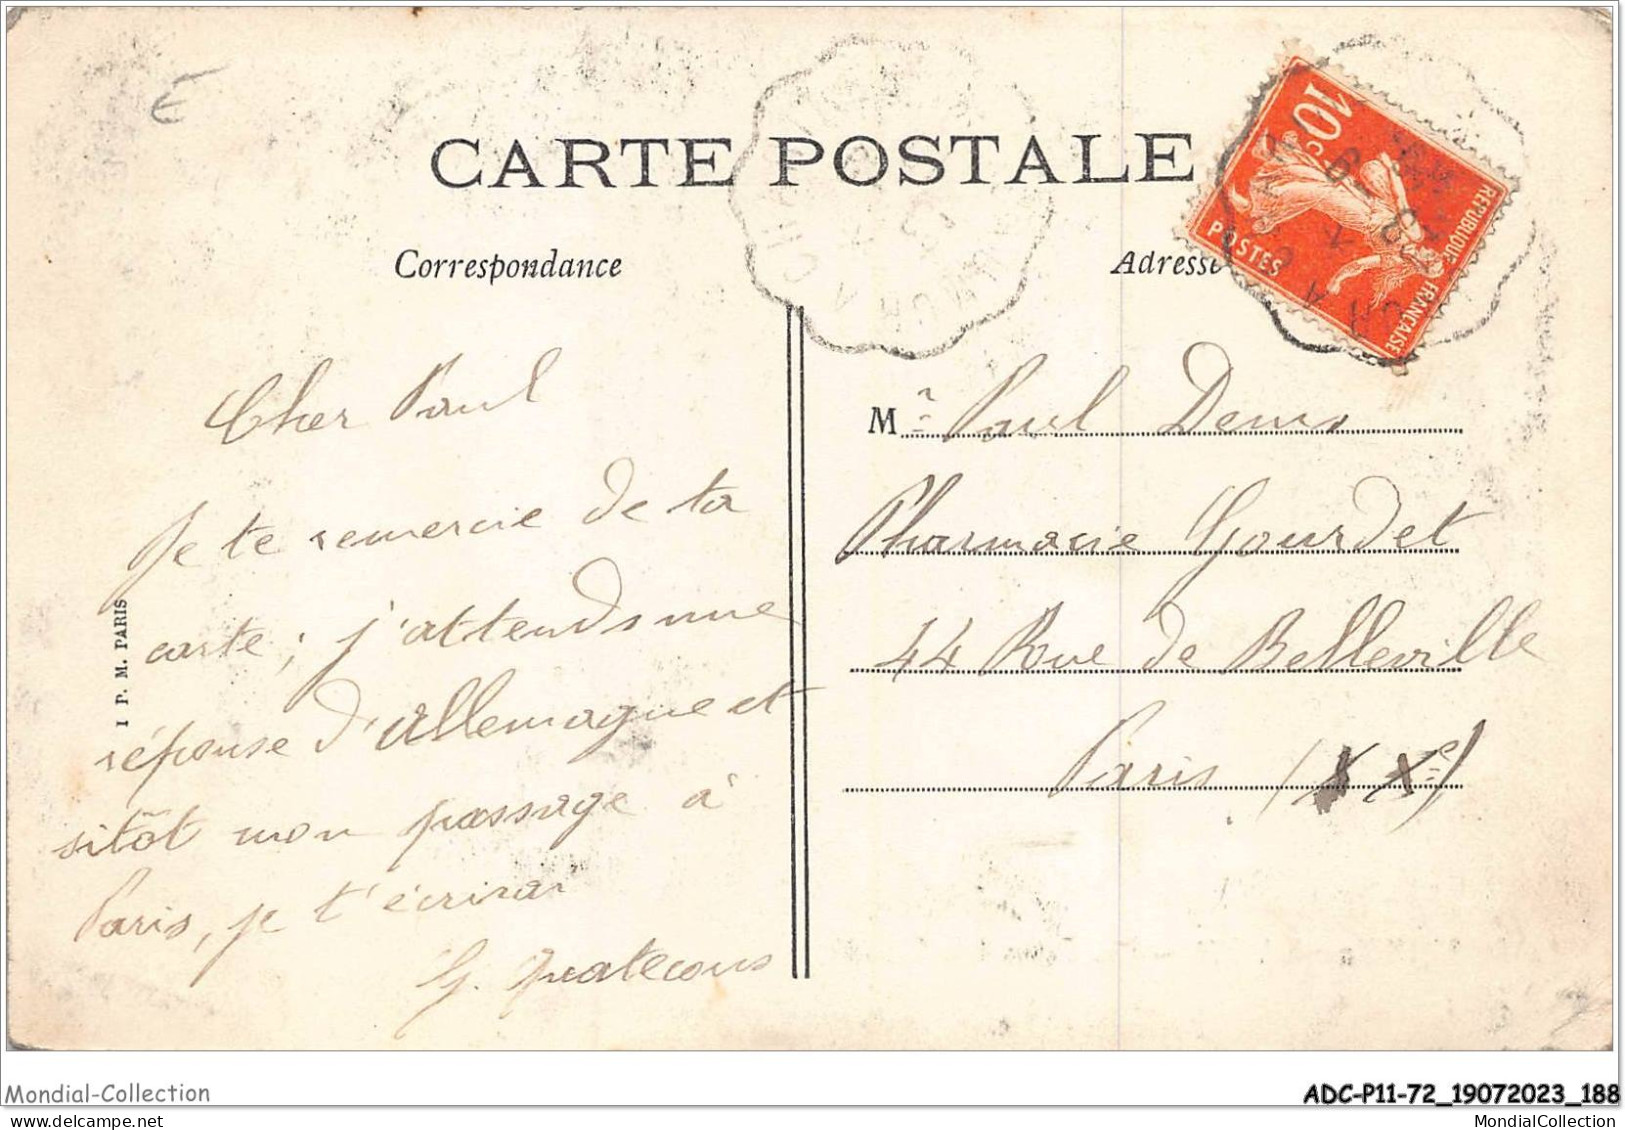 CARTE POSTALE
Correspondance
Adresse
10c
REPUBLIQUE FRANÇAISE
POSTES
Cher Paul
Je te remercie de ta
carte ; j'attends une
réponse d'Allemagne et
sitôt mon passage à
Paris, je t'écrirai
G.
Mr Paul
Pharmacie Gourdet
44 Rue de Belleville
Paris (XXe)
1 P. M. PARIS
Mondial-Collection
ADC-P11-72_19072023_188
MondialCollection